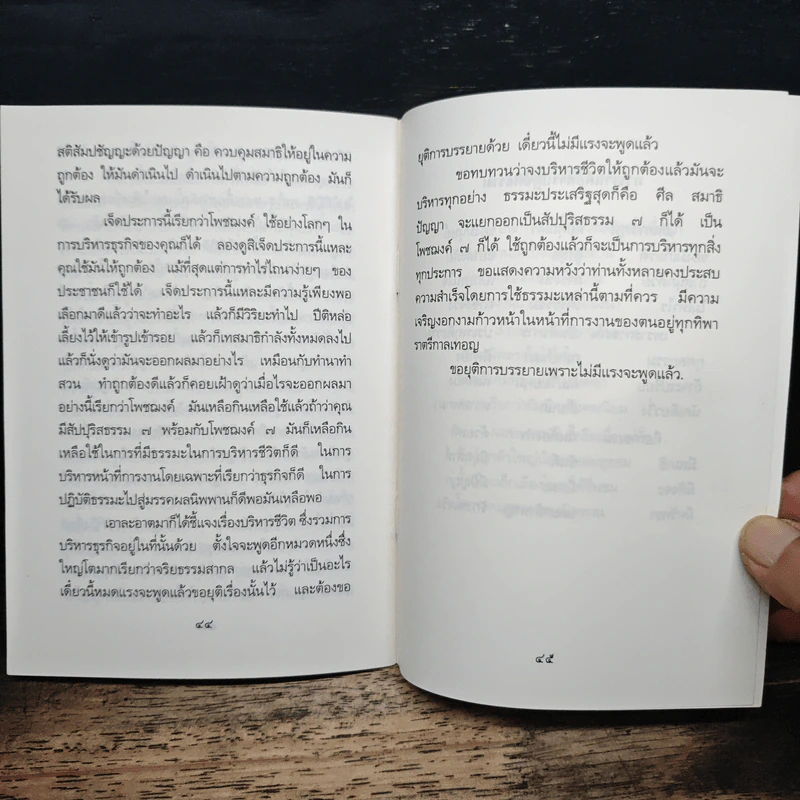 สติสัมปชัญญะด้วยปัญญา คือ ควบคุมสมาธิให้อยู่ในความ
ถูกต้อง ให้มันดำเนินไป ดำเนินไปตามความถูกต้อง มันก็
ได้รับผล
เจ็ดประการนี้เรียกว่าโพชฌงค์ ใช้อย่างโลกๆ ใน
การบริหารธุรกิจของคุณก็ได้ ลองดูสิเจ็ดประการนี้แหละ
คุณใช้มันให้ถูกต้อง แม้ที่สุดแต่การทำไร่ไถนาง่ายๆ ของ
ประชาชนก็ใช้ได้ เจ็ดประการนี้แหละมีความรู้เพียงพอ
เลือกมาดีแล้วว่าจะทำอะไร แล้วก็มีวิริยะทำไป ปีติหล่อ
เลี้ยงไว้ให้เข้ารูปเข้ารอย แล้วก็เทสมาธิกำลังทั้งหมดลงไป
แล้วก็นั่งดูว่ามันจะออกผลมาอย่างไร เหมือนกับทำนาทำ
สวน ทำถูกต้องดีแล้วก็คอยเฝ้าดูว่าเมื่อไรจะออกผลมา
อย่างนี้เรียกว่าโพชฌงค์ มันเหลือกินเหลือใช้แล้วถ้าว่าคุณ
มีสัปปุริสธรรม ๗ พร้อมกับโพชฌงค์ ๗ มันก็เหลือกิน
เหลือใช้ในการที่มีธรรมะในการบริหารชีวิตก็ดี ในการ
บริหารหน้าที่การงานโดยเฉพาะที่เรียกว่าธุรกิจก็ดี ในการ
ปฏิบัติธรรมะไปสู่มรรคผลนิพพานก็ดีพอมันเหลือพอ
เอาละอาตมาก็ได้ชี้แจงเรื่องบริหารชีวิต ซึ่งรวมการ
บริหารธุรกิจอยู่ในที่นั้นด้วย ตั้งใจจะพูดอีกหมวดหนึ่งซึ่ง
ใหญ่โตมากเรียกว่าจริยธรรมสากล แล้วไม่รู้ว่าเป็นอะไร
เดี๋ยวนี้หมดแรงจะพูดแล้วขอยุติเรื่องนั้นไว้ และต้องขอ
๔๔
ยุติการบรรยายด้วย เดี๋ยวนี้ไม่มีแรงจะพูดแล้ว
ขอทบทวนว่าจงบริหารชีวิตให้ถูกต้องแล้วมันจะ
บริหารทุกอย่าง ธรรมะประเสริฐสุดก็คือ ศีล สมาธิ
ปัญญา จะแยกออกเป็นสัปปุริสธรรม ๗ ก็ได้ เป็น
โพชฌงค์ ๗ ก็ได้ ใช้ถูกต้องแล้วก็จะเป็นการบริหารทุกสิ่ง
ทุกประการ ขอแสดงความหวังว่าท่านทั้งหลายคงประสบ
ความสำเร็จโดยการใช้ธรรมะเหล่านี้ตามที่ควร มีความ
เจริญงอกงามก้าวหน้าในหน้าที่การงานของตนอยู่ทุกทิพา
ราตรีกาลเทอญ
ขอยุติการบรรยายเพราะไม่มีแรงจะพูดแล้ว.
๔๕